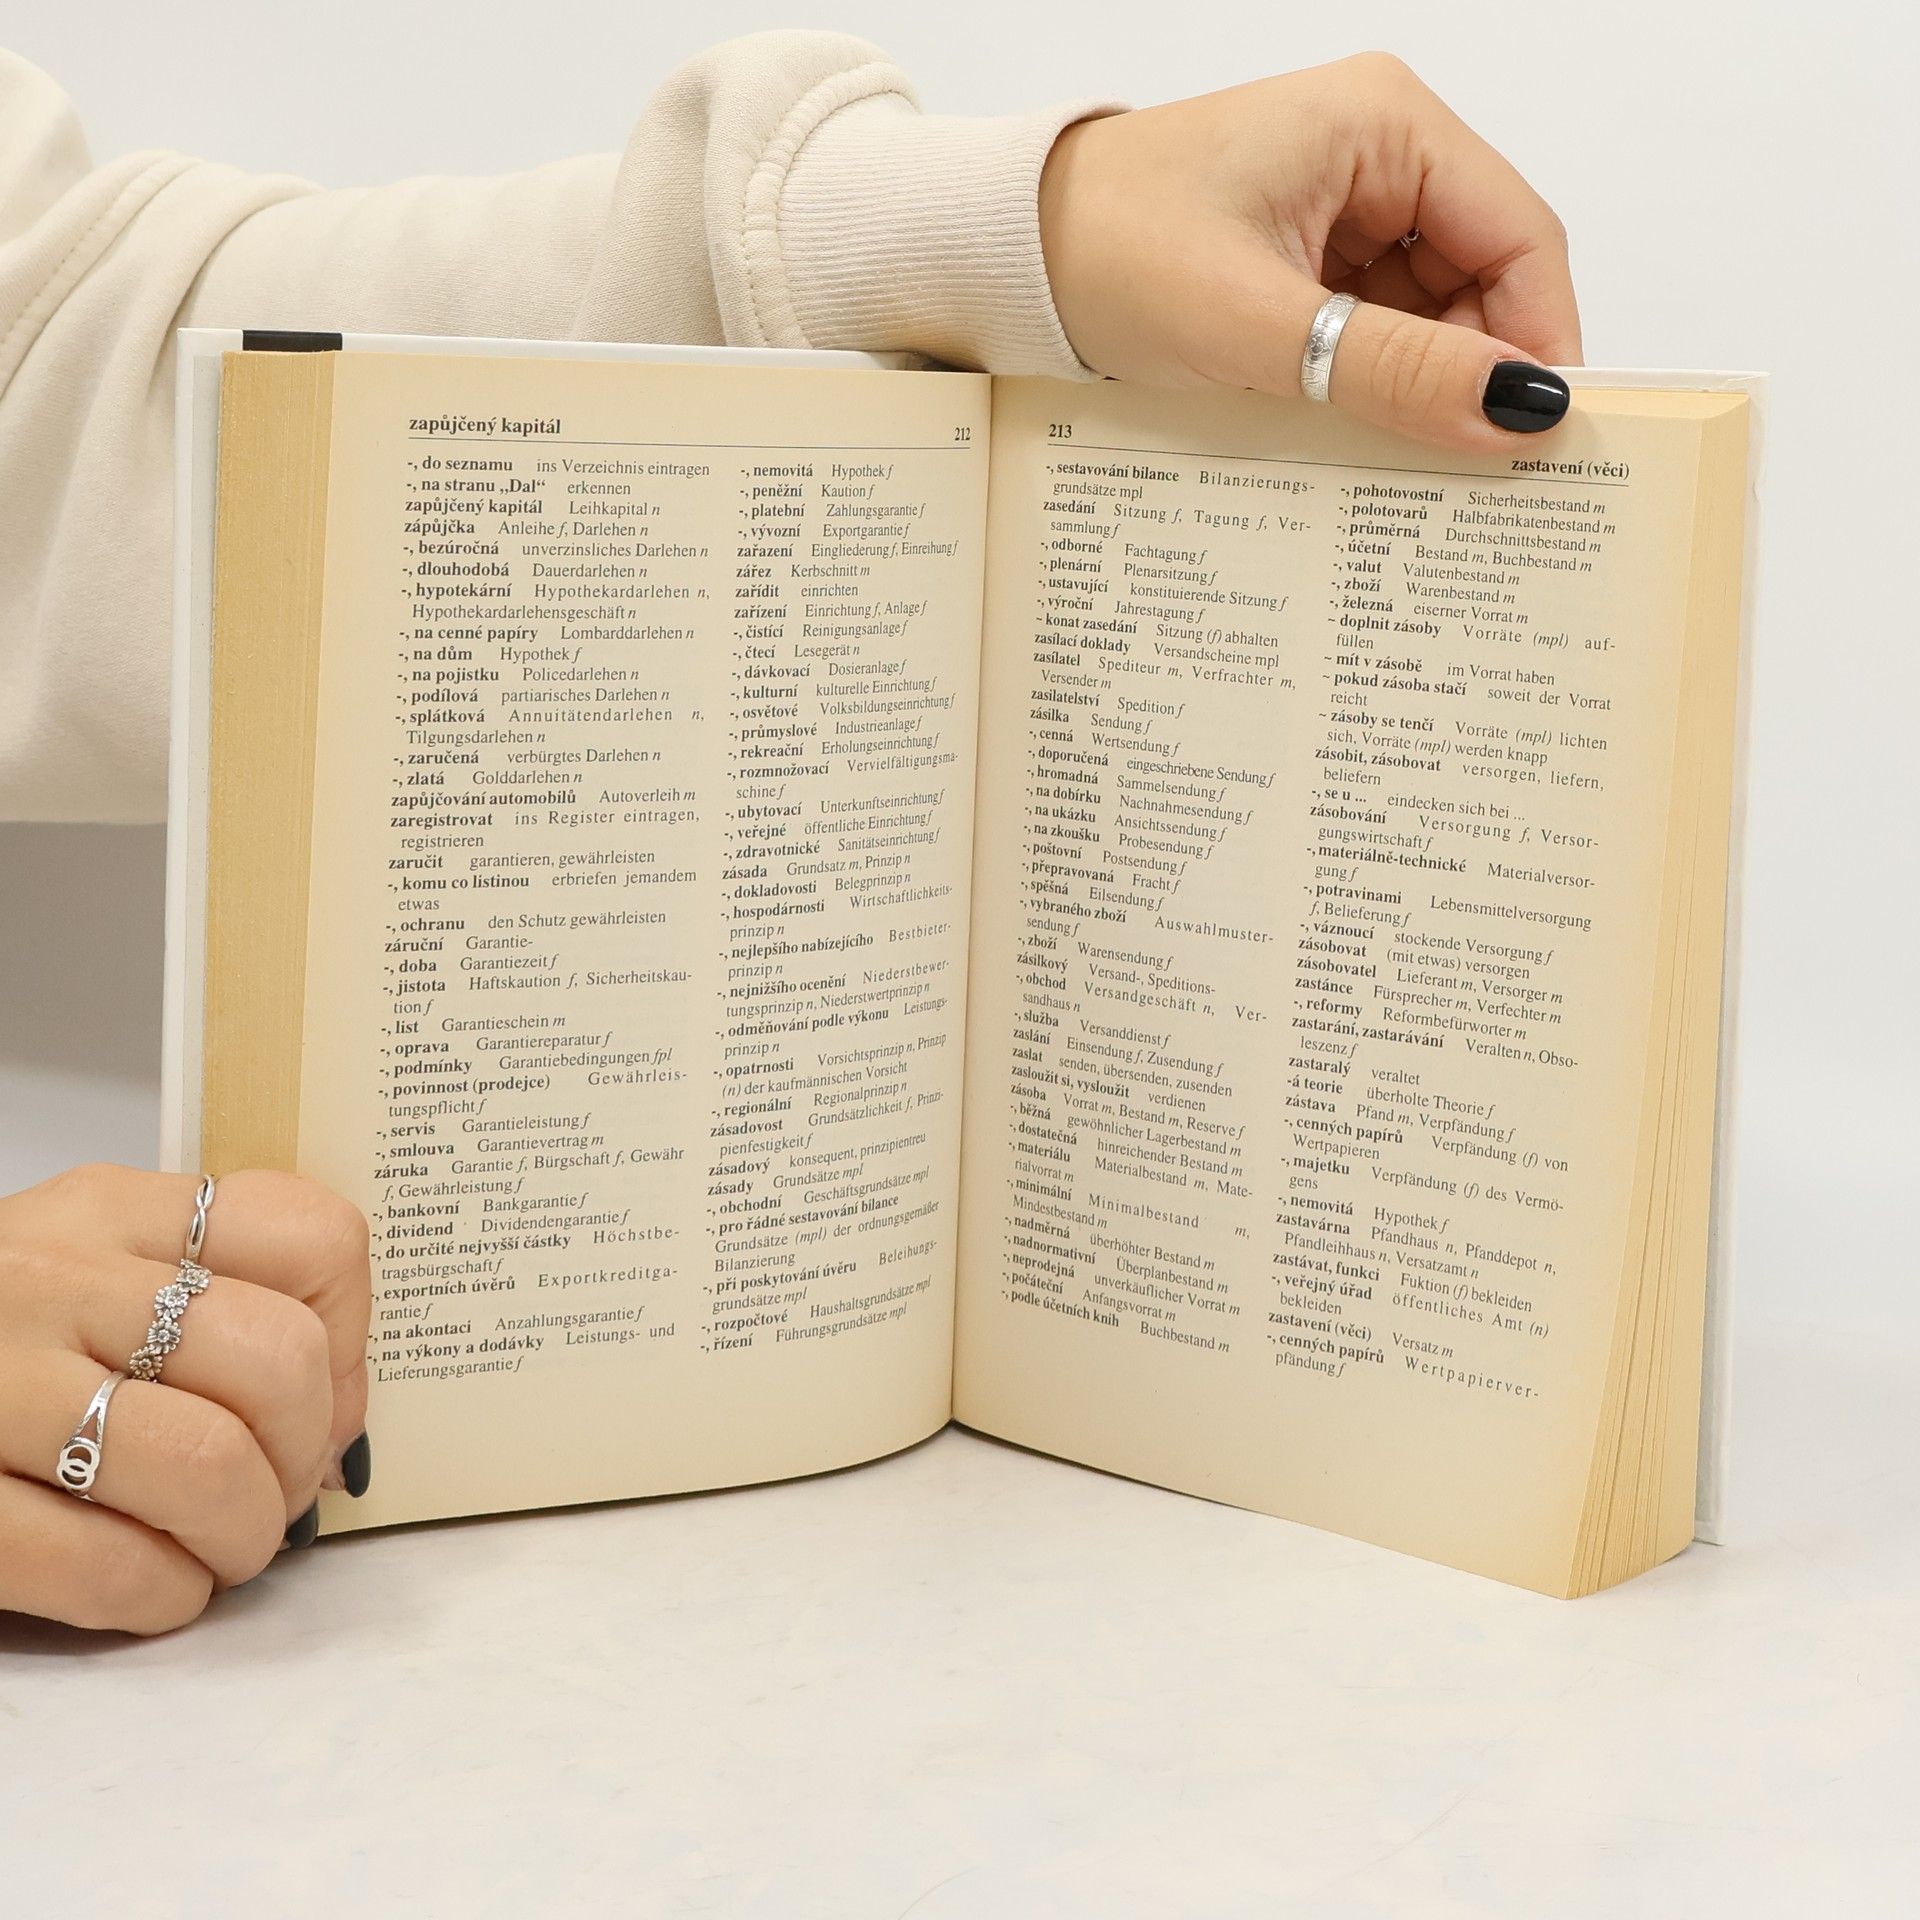 zapůjčený kapitál
212
-, do seznamu ins Verzeichnis eintragen
-, na stranu „Dal“ erkennen
zapůjčený kapitál Leihkapital n
zápůjčka Anleihe f, Darlehen n
-, bezúročná unverzinsliches Darlehen n
-, dlouhodobá Dauerdarlehen n
-, hypotekární Hypothekardarlehen n,
Hypothekardarlehensgeschäft n
-, na cenné papíry Lombarddarlehen n
-, na dům Hypothek f
-, na pojistku Policedarlehen n
-, podílová partiarisches Darlehen n
-, splátková Annuitätendarlehen n,
Tilgungsdarlehen n
-, zaručená verbürgtes Darlehen n
-, zlatá Golddarlehen n
zapůjčování automobilů Autoverleih m
zaregistrovat ins Register eintragen,
registrieren
zaručit garantieren, gewährleisten
-, komu co listinou erbriefen jemandem
etwas
-, ochranu den Schutz gewährleisten
záruční Garantie-
-, doba Garantiezeit f
-, jistota Haftskaution f, Sicherheitskau-
tion f
-, list Garantieschein m
-, oprava Garantiereparatur f
-, podmínky Garantiebedingungen fpl
-, povinnost (prodejce) Gewährleis-
tungspflicht f
-, servis Garantieleistung f
-, smlouva Garantievertrag m
záruka Garantie f, Bürgschaft f, Gewähr
f, Gewährleistung f
-, bankovní Bankgarantie f
-, dividend Dividendengarantie f
-, do určité nejvyšší částky Höchstbe-
tragsbürgschaft f
-, exportních úvěrů Exportkreditga-
rantie f
-, na akontaci Anzahlungsgarantie f
-, na výkony a dodávky Leistungs- und
Lieferungsgarantie f
-, nemovitá Hypothek f
-, peněžní Kaution f
-, platební Zahlungsgarantie f
-, vývozní Exportgarantie f
zařazení Eingliederung f, Einreihung f
zářez Kerbschnitt m
zařídit einrichten
zařízení Einrichtung f, Anlage f
-, čistící Reinigungsanlage f
-, čtecí Lesegerät n
-, dávkovací Dosieranlage f
-, kulturní kulturelle Einrichtung f
-, osvětové Volksbildungseinrichtung f
-, průmyslové Industrieanlage f
-, rekreační Erholungseinrichtung f
-, rozmnožovací Vervielfältigungsma-
schine f
-, ubytovací Unterkunftseinrichtung f
-, veřejné öffentliche Einrichtung f
-, zdravotnické Sanitätseinrichtung f
zásada Grundsatz m, Prinzip n
-, dokladovosti Belegprinzip n
-, hospodárnosti Wirtschaftlichkeits-
prinzip n
-, nejlepšího nabízejícího Bestbieter-
prinzip n
-, nejnižšího ocenění Niederstbewer-
tungsprinzip n, Niederstwertprinzip n
-, odměňování podle výkonu Leistungs-
prinzip n
-, opatrnosti Vorsichtsprinzip n, Prinzip
(n) der kaufmännischen Vorsicht
-, regionální Regionalprinzip n
zásadovost Grundsätzlichkeit f, Prinzi-
pienfestigkeit f
zásadový konsequent, prinzipientreu
zásady Grundsätze mpl
-, obchodní Geschäftsgrundsätze mpl
-, pro řádné sestavování bilance
Grundsätze (mpl) der ordnungsgemäßer
Bilanzierung
-, při poskytování úvěru Beleihungs-
grundsätze mpl
-, rozpočtové Haushaltsgrundsätze mpl
-, řízení Führungsgrundsätze mpl
213
zastavení (věci)
-, sestavování bilance Bilanzierungs-
grundsätze mpl
zasedání Sitzung f, Tagung f, Ver-
sammlung f
-, odborné Fachtagung f
-, plenární Plenarsitzung f
-, ustavující konstituierende Sitzung f
-, výroční Jahrestagung f
~ konat zasedání Sitzung (f) abhalten
zasílací doklady Versandscheine mpl
zasílatel Spediteur m, Verfrachter m,
Versender m
zasilatelství Spedition f
zásilka Sendung f
-, cenná Wertsendung f
-, doporučená eingeschriebene Sendung f
-, hromadná Sammelsendung f
-, na dobírku Nachnahmesendung f
-, na ukázku Ansichtssendung f
-, na zkoušku Probesendung f
-, poštovní Postsendung f
-, přepravovaná Fracht f
-, spěšná Eilsendung f
-, vybraného zboží Auswahlmuster-
sendung f
-, zboží Warensendung f
zásilkový Versand-, Speditions-
-, obchod Versandgeschäft n, Ver-
sandhaus n
-, služba Versanddienst f
zaslání Einsendung f, Zusendung f
zaslat senden, übersenden, zusenden
zasloužit si, vysloužit verdienen
zásoba Vorrat m, Bestand m, Reserve f
-, běžná gewöhnlicher Lagerbestand m
-, dostatečná hinreichender Bestand m
-, materiálu Materialbestand m, Mate-
rialvorrat m
-, minimální Minimalbestand m,
Mindestbestand m
-, nadměrná überhöhter Bestand m
-, nadnormativní Überplanbestand m
-, neprodejná unverkäuflicher Vorrat m
-, počáteční Anfangsvorrat m
-, podle účetních knih Buchbestand m
-, pohotovostní Sicherheitsbestand m
-, polotovarů Halbfabrikatenbestand m
-, průměrná Durchschnittsbestand m
-, účetní Bestand m, Buchbestand m
-, valut Valutenbestand m
-, zboží Warenbestand m
-, železná eiserner Vorrat m
~ doplnit zásoby Vorräte (mpl) auf-
füllen
~ mít v zásobě im Vorrat haben
~ pokud zásoba stačí soweit der Vorrat
reicht
~ zásoby se tenčí Vorräte (mpl) lichten
sich, Vorräte (mpl) werden knapp
zásobit, zásobovat versorgen, liefern,
beliefern
-, se u ... eindecken sich bei ...
zásobování Versorgung f, Versor-
gungswirtschaft f
-, materiálně-technické Materialversor-
gung f
-, potravinami Lebensmittelversorgung
f, Belieferung f
-, váznoucí stockende Versorgung f
zásobovat (mit etwas) versorgen
zásobovatel Lieferant m, Versorger m
zastánce Fürsprecher m, Verfechter m
-, reformy Reformbefürworter m
zastarání, zastarávání Veralten n, Obso-
leszenz f
zastaralý veraltet
-á teorie überholte Theorie f
zástava Pfand m, Verpfändung f
-, cenných papírů Verpfändung (f) von
Wertpapieren
-, majetku Verpfändung (f) des Vermö-
gens
-, nemovitá Hypothek f
zastavárna Pfandhaus n, Pfanddepot n,
Pfandleihhaus n, Versatzamt n
zastávat, funkci Fuktion (f) bekleiden
-, veřejný úřad öffentliches Amt (n)
bekleiden
zastavení (věci) Versatz m
-, cenných papírů Wertpapierver-
pfändung f